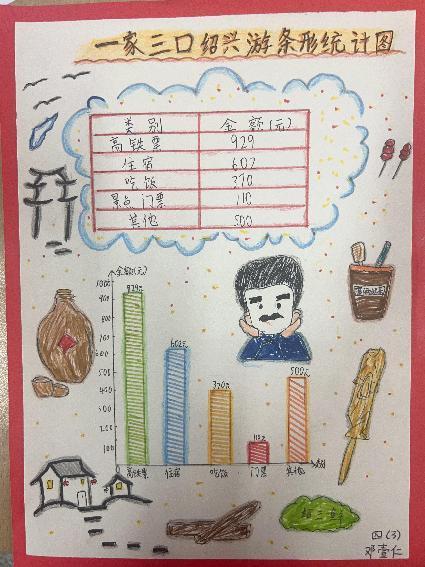 一家三口绍兴游条形统计图
类别 金额(元)
高铁票 929
住宿 602
吃饭 320
景点门票 110
其他 500
金额(元)
1000
900
800
700
600
500
400
300
200
100
929元
602元
320元
110元
500元
高铁票 住宿 吃饭 门票 其他 类别
四(3)
邓壹仁